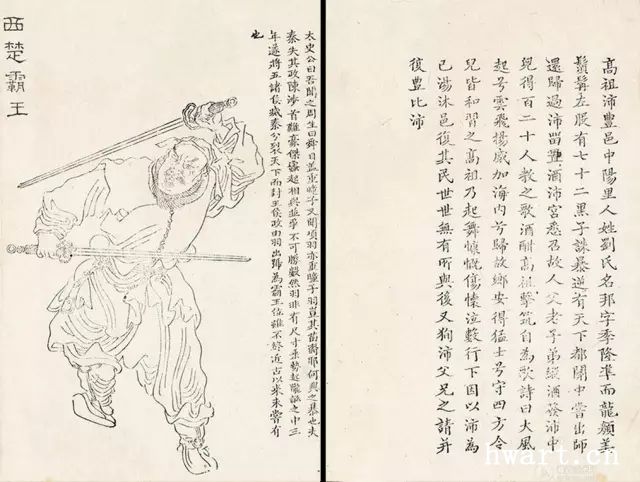 高祖沛豐邑中陽里人姓劉氏名邦字季隆準而龍顏美
鬚髯左股有七十二黑子誅暴逆有天下都關中嘗出師
還歸過沛留置酒沛宮悉召故人父老子弟縱酒發沛中
兒得百二十人教之歌酒酣高祖擊筑自為歌詩曰大風
起兮雲飛揚威加海內兮歸故鄉安得猛士兮守四方令
兒皆和習之高祖乃起舞慷慨傷懷泣數行下因以沛為
已湯沐邑復其民世世無有所與後又狥沛父兄之請并
復豐比沛
太史公曰吾聞之周生曰舜目蓋重瞳子又聞項羽亦重瞳子羽豈其苗裔耶何興之暴也夫
秦失其政陳涉首難豪傑蠭起相與並爭不可勝數然羽非有尺寸乘勢起隴畝之中三
年遂將五諸侯滅秦分裂天下而封王侯政由羽出號為霸王位雖不終近古以來未嘗有
也
西楚霸王
hwart.cn